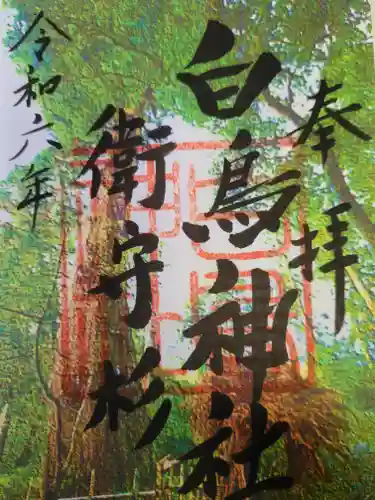 奉拝
白鳥神社
衛守杉
令和六年